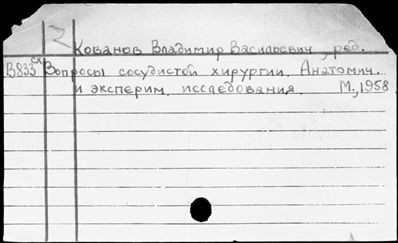 Кованов Владимир Васильевич, ред.
В833 Вопросы сосудистой хирургии. Анатомич.
и эксперим. исследования. М., 1958